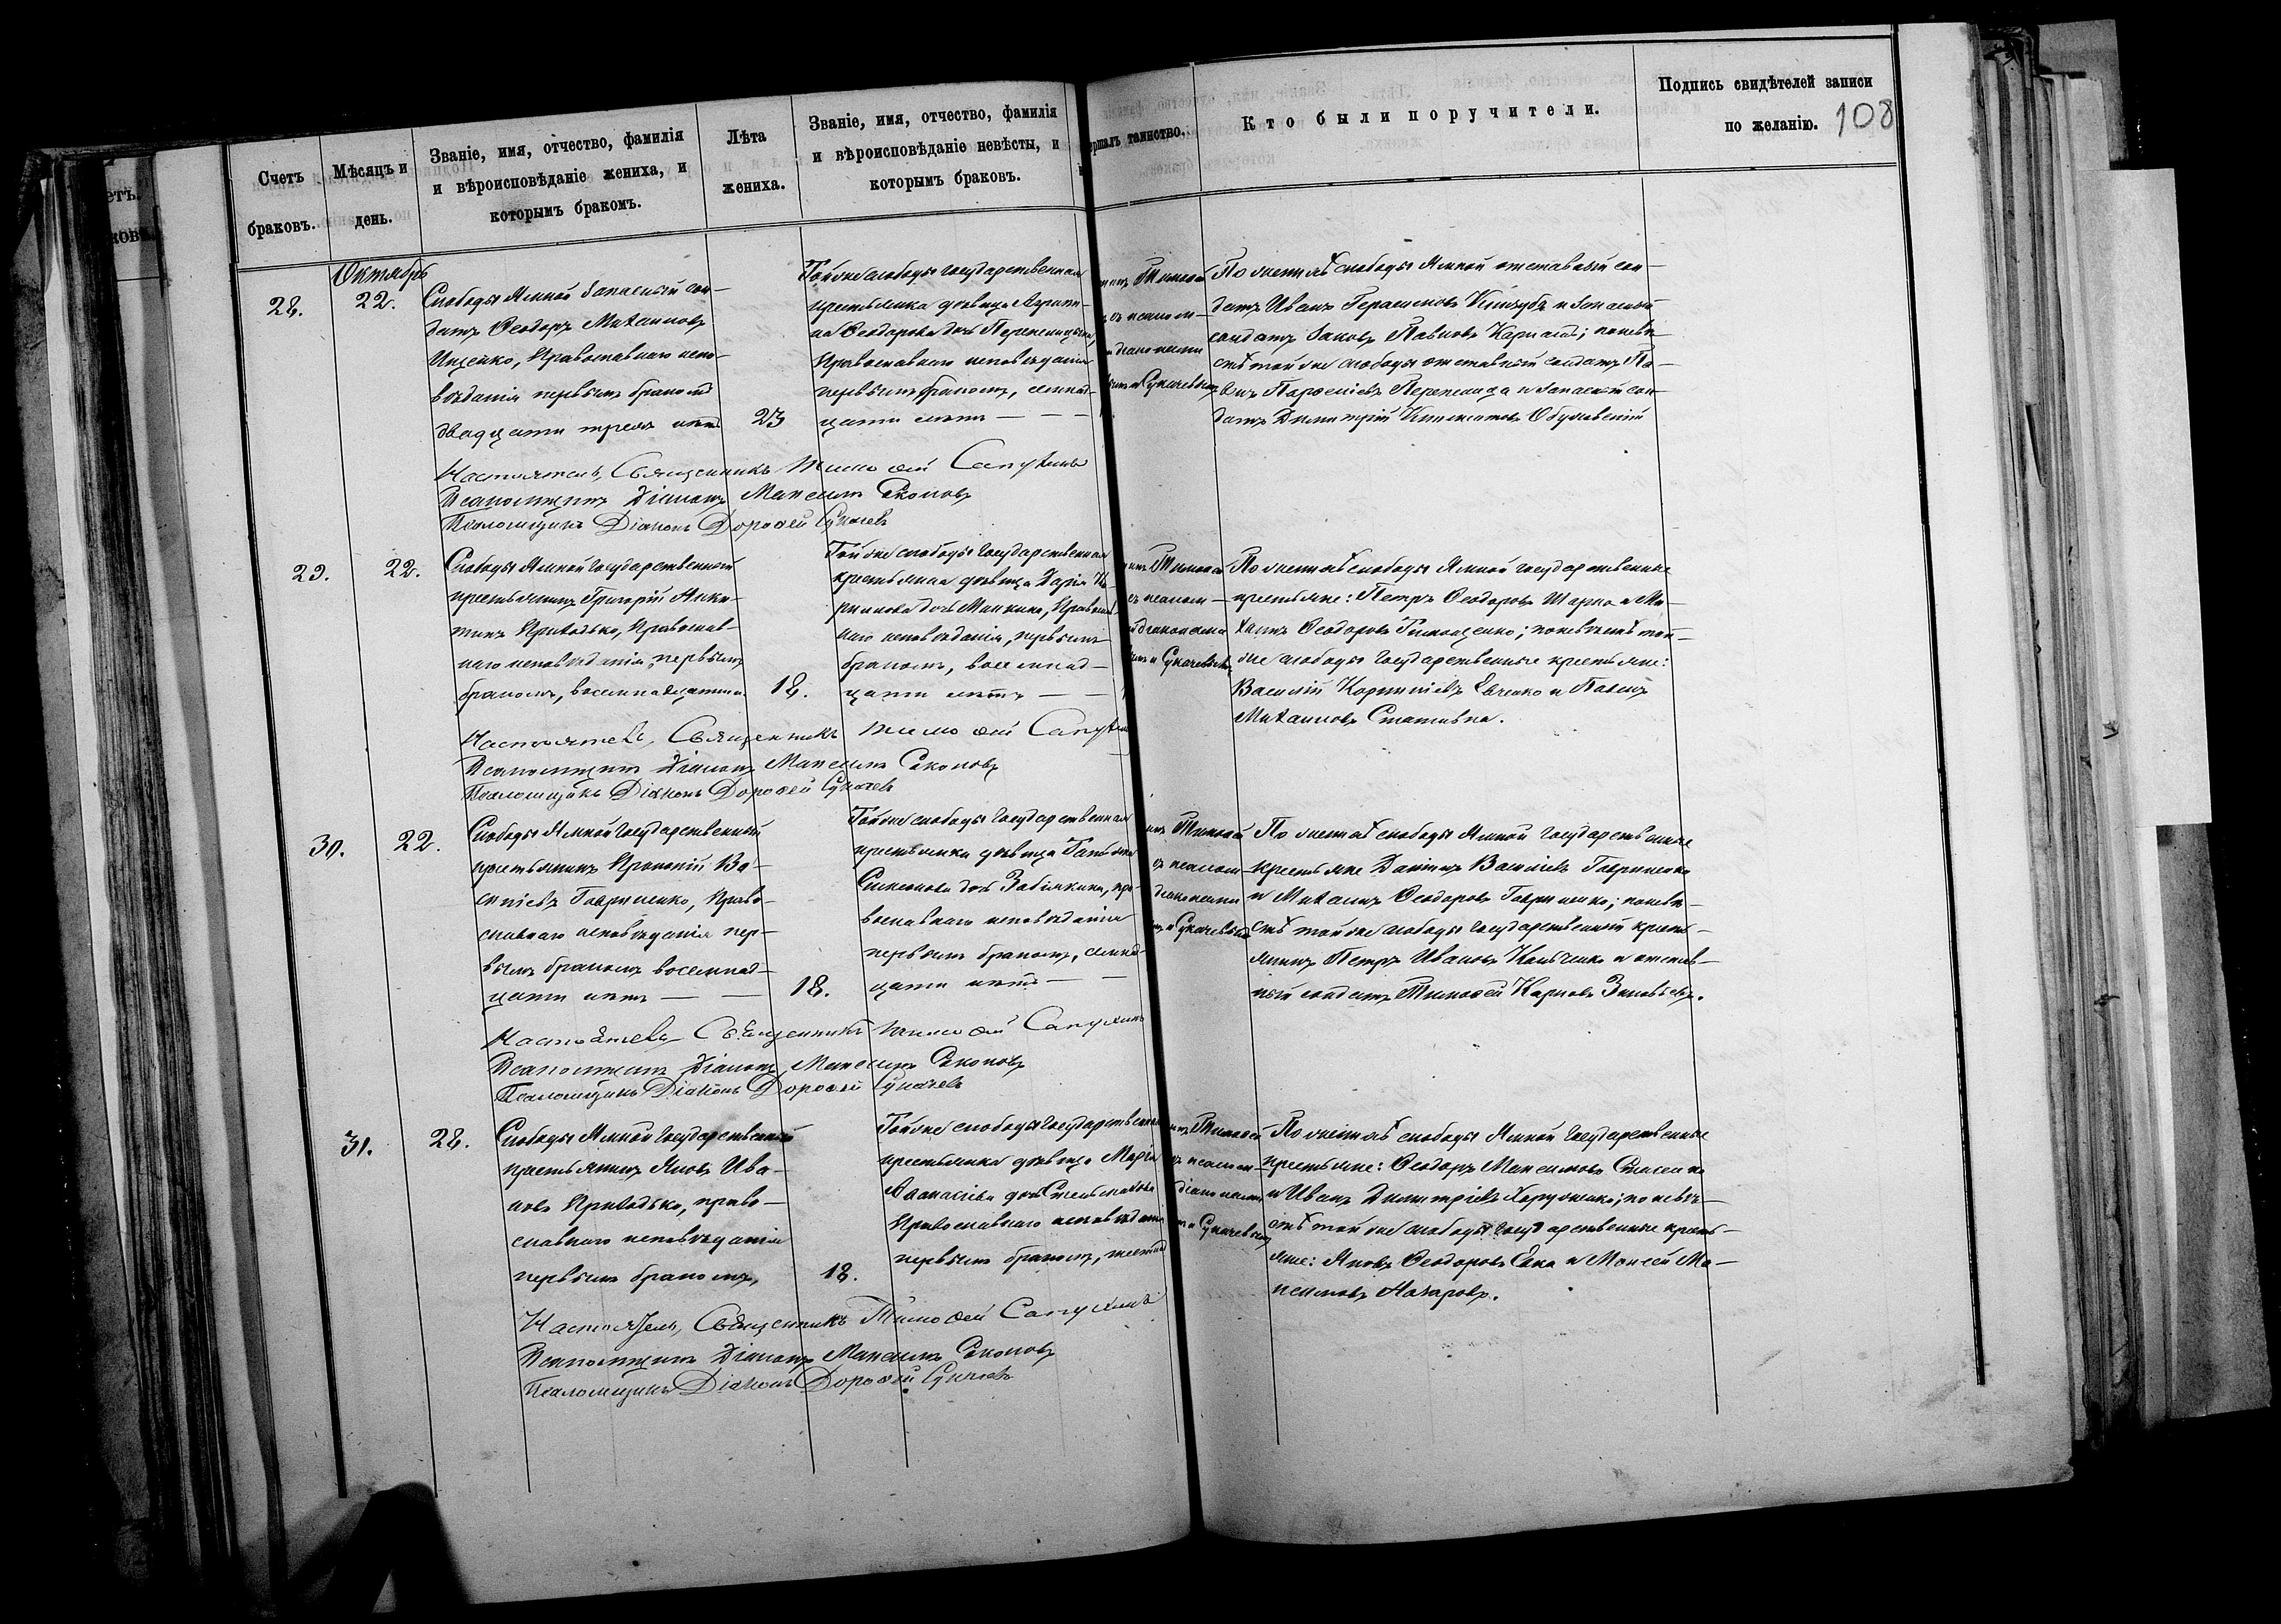 Счетъ
браковъ.
Мѣсяцъ и
день.
Званіе, имя, отчество, фамилія
и вѣроисповѣданіе жениха, и
которымъ бракомъ.
Лѣта
жениха.
Званіе, имя, отчество, фамилія
и вѣроисповѣданіе невѣсты, и
которымъ браковъ.
таинство.
Кто были поручители.
Подпись свидѣтелей записи
по желанію.
108
Октябрь
28.
22.
Слободы Ямной запасный сол-
датъ Ѳеодоръ Михаиловъ
Ищенко, Православнаго испо-
вѣданія первымъ бракомъ
двадцати трехъ лѣтъ
23
Тойже слободы государственная
крестьянка дѣвица Агрипи-
на Ѳеодорова дочь
Православнаго исповѣданія
первымъ бракомъ, семнад-
цати лѣтъ
Тимоѳей
съ псалом-
діаконами
и Сукачевымъ
По женихѣ слободы Ямной отставный сол-
датъ Иванъ Герасимовъ и запасный
солдатъ Яковъ Павловъ; по невѣ-
стѣ той же слободы отставный солдатъ Па-
велъ Перепелица и запасный сол-
датъ Димитрій
Настоятель, Священникъ Тимоѳей Сапухинъ
Псаломщикъ Діаконъ Максимъ
Псаломщикъ Діаконъ Дороѳей Сукачевъ
29.
22.
Слободы Ямной государственный
крестьянинъ Григорій Ники-
тинъ Приходько, Православ-
наго исповѣданія, первымъ
бракомъ, восемнадцати
18.
Тойже слободы государственная
крестьянка дѣвица Дарія
дочь Православ-
наго исповѣданія, первымъ
бракомъ, восемнад-
цати лѣтъ
Тимоѳей
съ псалом-
діаконами
и Сукачевымъ
По женихѣ слободы Ямной государственные
крестьяне: Петръ Ѳеодоровъ и Ми-
хаилъ Ѳеодоровъ; по невѣстѣ той-
же слободы государственные крестьяне:
Василій Корниліевъ и Павелъ
Михаиловъ Стативка.
Настоятель, Священникъ Тимоѳей
Псаломщикъ Діаконъ Максимъ
Псаломщикъ Діаконъ Дороѳей Сукачевъ
30.
22.
Слободы Ямной государственный
крестьянинъ Прокопій Ва-
силіевъ Гавриленко, Право-
славнаго исповѣданія пер-
вымъ бракомъ восемнад-
цати лѣтъ
18.
Тойже слободы государственная
крестьянка дѣвица Татьяна
Симеонова дочь Забіякина, пра-
вославнаго исповѣданія
первымъ бракомъ, семнад-
цати лѣтъ
Тимоѳей
съ псалом-
діаконами
и Сукачевымъ
По женихѣ слободы Ямной государственные
крестьяне Даніилъ Василіевъ Гавриленко
и Михаилъ Ѳеодоровъ Гавриленко; по невѣ-
стѣ той же слободы государственный кресть-
янинъ Петръ Ивановъ и отстав-
ный солдатъ Тимоѳей Карповъ
Настоятель, Священникъ Тимоѳей Сапухинъ
Псаломщикъ Діаконъ Максимъ
Псаломщикъ Діаконъ Дороѳей Сукачевъ
31.
28.
Слободы Ямной государственный
крестьянинъ Яковъ Ива-
новъ Приходько, право-
славнаго исповѣданія
первымъ бракомъ,
18.
Тойже слободы государственная
крестьянка дѣвица Марія
Аѳанасіева дочь Стельмахова
Православнаго исповѣданія
первымъ бракомъ,
Тимоѳей
съ псалом-
діаконами
и Сукачевымъ
По женихѣ слободы Ямной государственные
крестьяне: Ѳеодоръ Максимовъ
и Иванъ Димитріевъ; по невѣ-
стѣ той же слободы государственные кресть-
яне: Яковъ Ѳеодоровъ и Моисей Ма-
ксимовъ Назаровъ.
Настоятель, Священникъ Тимоѳей Сапухинъ
Псаломщикъ Діаконъ Максимъ
Псаломщикъ Діаконъ Дороѳей Сукачевъ